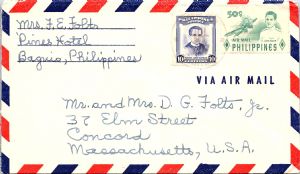 Mrs. F. E. Folts
Pines Hotel
Baguio, Philippines
50¢
AIR MAIL
PHILIPPINES
10 10
VIA AIR MAIL
Mr. and Mrs. D. G. Folts, Jr.
37 Elm Street
Concord
Massachusetts, U.S.A.